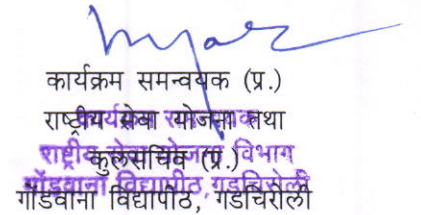 कार्यक्रम समन्वयक (प्र.)
राष्ट्रीय सेवा योजना तथा
कुलसचिव (प्र.)
गोंडवाना विद्यापीठ, गडचिरोली
कार्यक्रम समन्वयक
राष्ट्रीय सेवा योजना विभाग
गोंडवाना विद्यापीठ, गडचिरोली